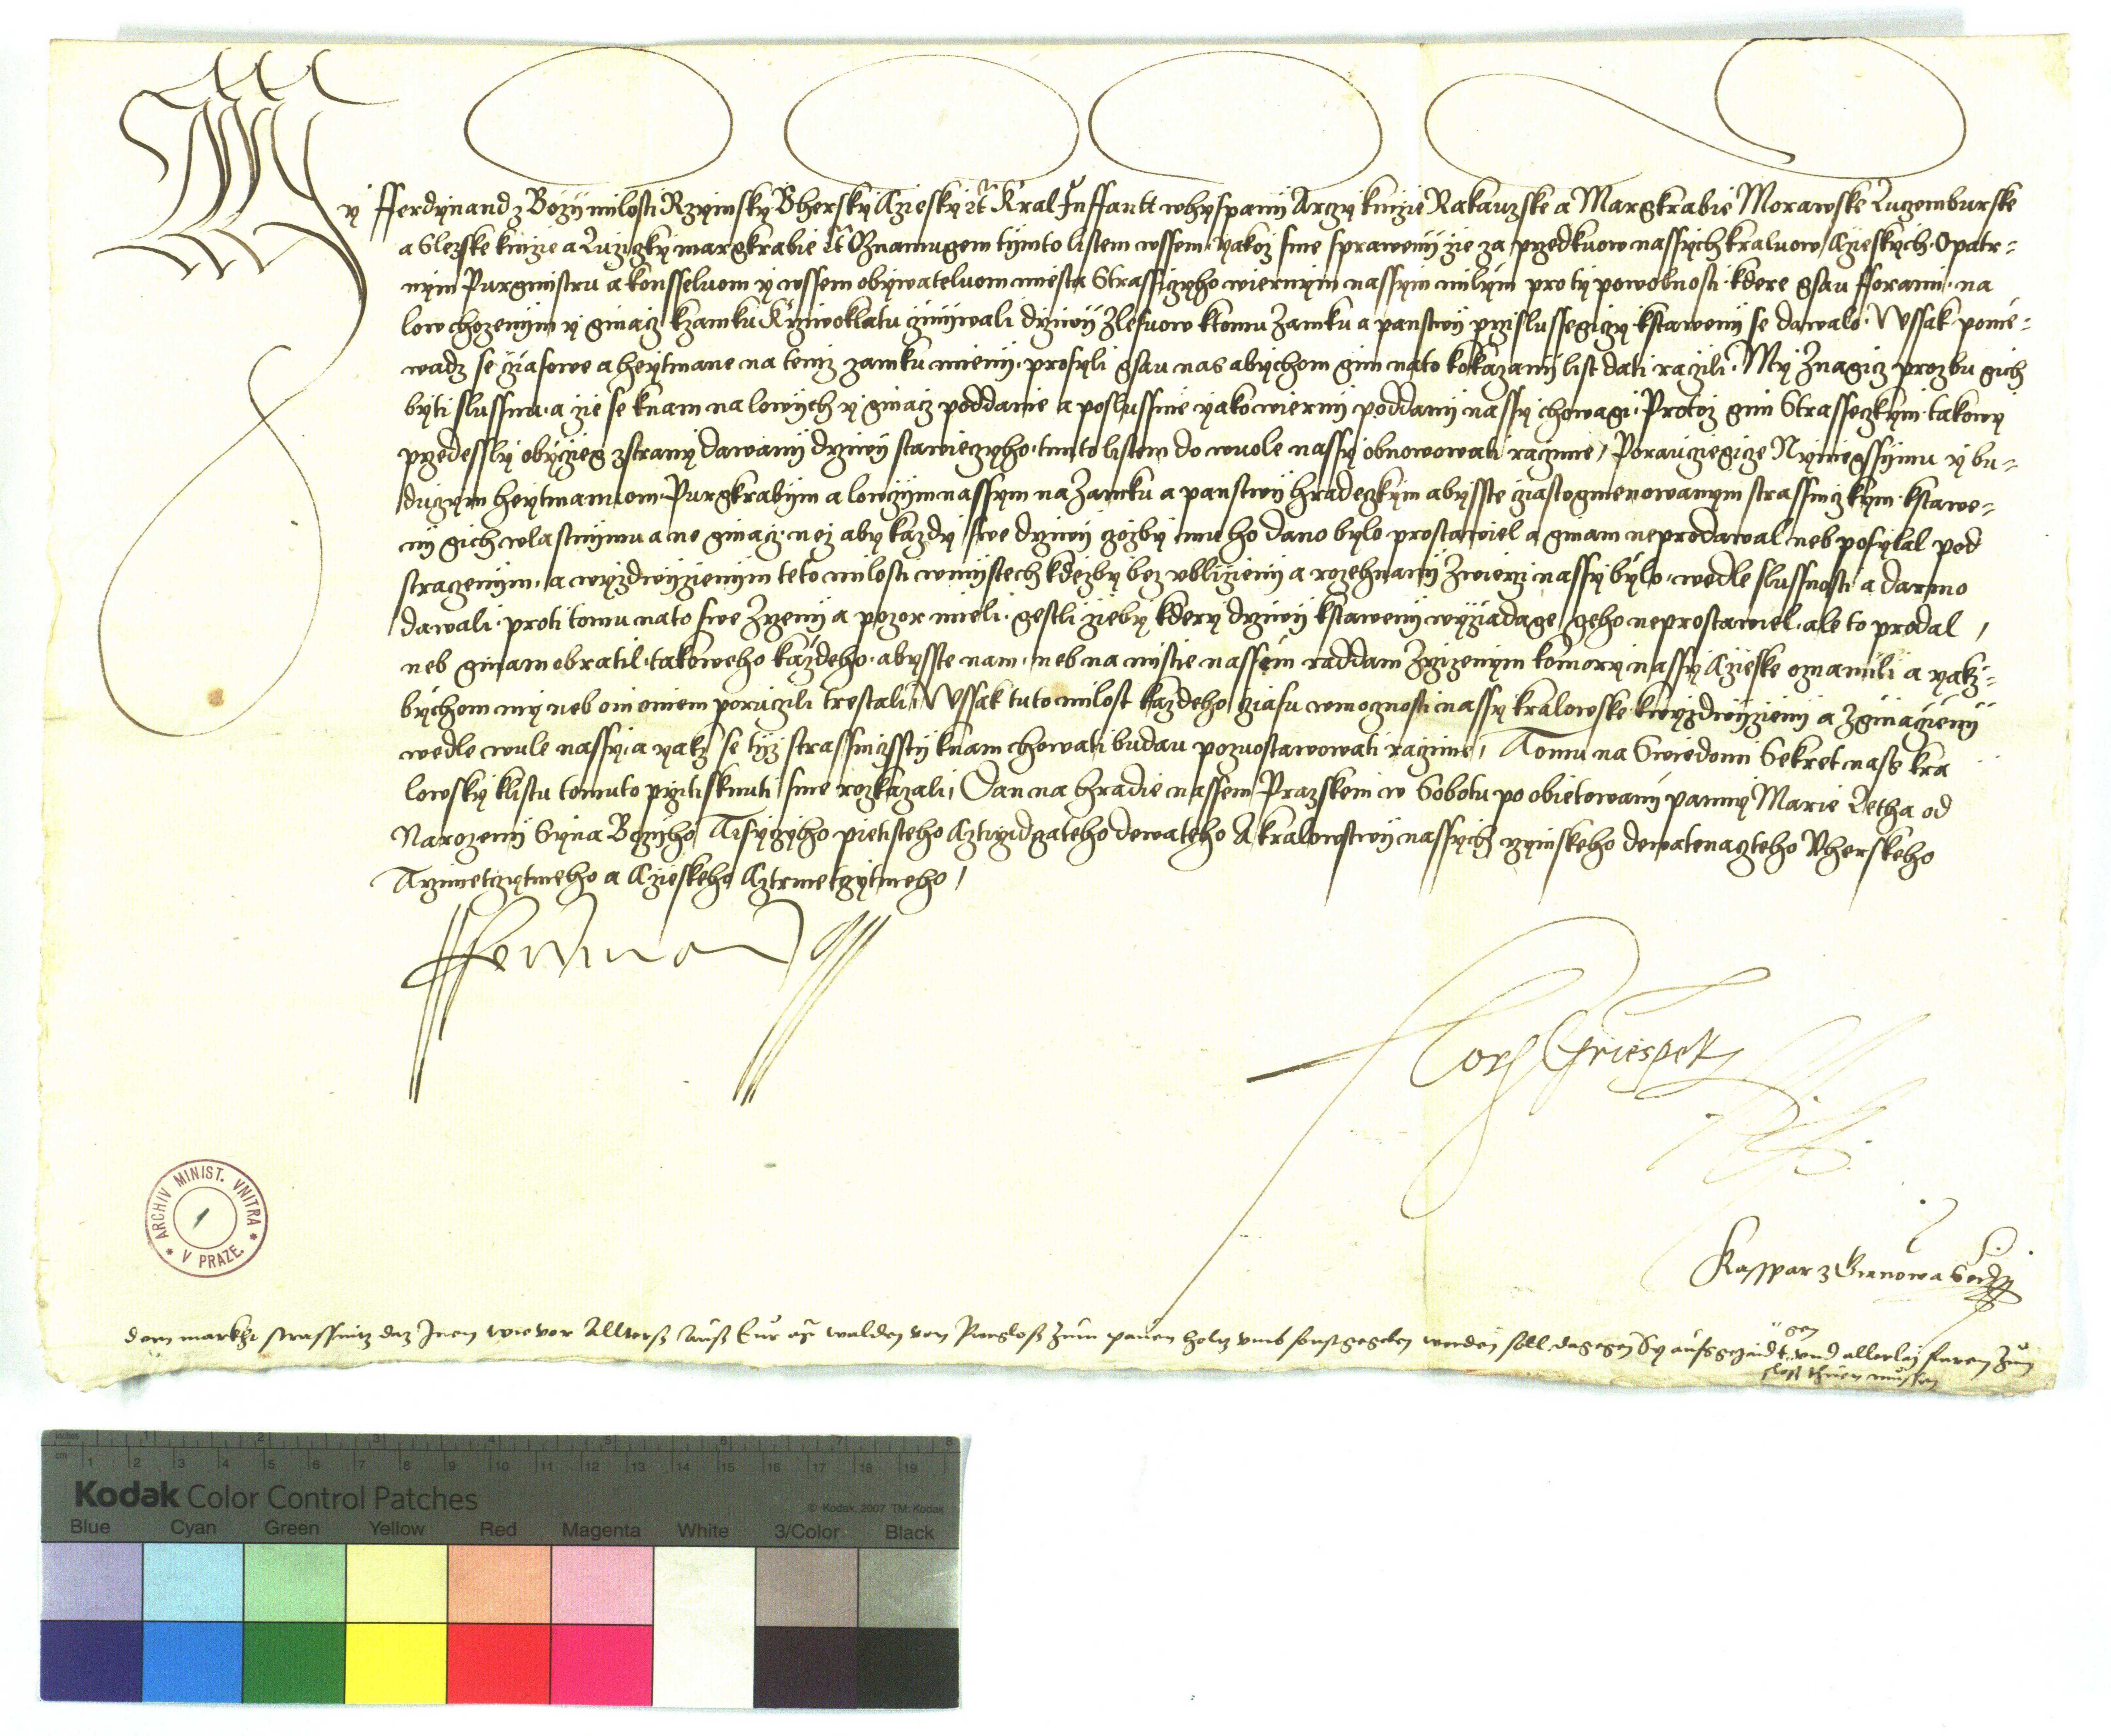 My Fferdynand z Bozij milosti Rzymsky Vhersky Cziesky ꝛc̃ Kral Inffantt whyspanij Arczy knizie Rakauzske a Margkrabie Morawske Luczemburske
a Slezske knizie a Luziczky margkrabie ꝛc̃ Oznamugem tijmto listem wssem. yakoz sme sprawenij zie za przedkuow nassych kraluow Czieskych. Opatr=
nym Purgmistru a konsseluom y wssem obywateluom miesta Strassiczyho wiernym nassym milym pro ty powolnosti. kdere gsau fforami. na
low chozenijm y ginacz kzamku Krziwoklatu czinijwali drziwij Zlesuow ktomu Zamku a panstwij przislussegiczy kstawenij se dawalo. Wssak ponie=
wadz se cziasowe a heytmane na temz zamku mienij. prosyli gsau nas abychom gim nato kokazanij list dati raczili. My Znagicz prozbu gich
byti slussnu. a zie se knam na lowych y ginacz poddanie a poslussnie yako wiernij poddanij nassy chowagi. Protoz gim Strasseczkym. takowy
przedessly obyczieg zstrany dawanij drziwij stawiecziho. timto listem do wuole nassy obnowowati raczime / Porauczegicze Nyniegssijmu y bu=
duczym heytmanuom. Purgkrabijm a lowczijm nassym na Zamku a panstwij hradeczkym abysste cziastogmenowanym strassniczkym. kstawe=
nij gich wlastnijmu a ne ginacz. nez aby kazdy swe drziwij czozby mu ho dano bylo prostawiel a ginam neprodawal neb posylal pod
straczenijm. a wyzdwijzienijm teto milosti wmijstech kdezby bez vblizienij a rozehnanij Zwierzi nassy bylo. wedle slussnosti a darmo
dawali. proti tomu nato swe Zrzenij a pozor mieli. gestli zieby kdery drziwij kstawenij wyziadage / geho neprostawiel. ale to prodal /
neb ginam obratil. takoweho kazdeho. abysste nam. neb na mistie nassem raddam Zrzizenym komory nassy Czieske oznamili a yakz=
bychom my neb oni gmenem poruczili trestali / Wssak tuto milost kazdeho cziasu wmoznosti nassy kralowske. kwyzdwijzienij a Zginaczienij
wedle wule nassy. a yakz se tijz strassniczsstij knam chowati budau pozuostawowati raczime / Tomu na Swiedomi Sekret nass kra
lowsky klistu tomuto przitisknuti sme rozkazali / Dan na hradie nassem Prazskem w Sobotu po obietowanij panny Marie Letha od
Narozenij Syna Boziho Tisyczyho pietisteho Cztrzidczateho dewateho A kralowstwij nassych rzymskeho dewatenaczteho Vherskeho
Trzmetczytmeho a Czieskeho Cztrmetczytmeho /
Fferdinand
Florian Griespek
Kasspar z Granowa Sekr
ARCHIV MINIST. VNITRA * V PRAZE *
dem markht strassnitz daz Inen wie vor Allters auß Eur walden von Purgloß zum pauen holtz vmb sonst gegeben werden soll dagegen Sy aufs gejaidt und allerlaj faren zum
schloß thuen müssen
inches 1 2 3 4 5 6 7 8
cm 1 2 3 4 5 6 7 8 9 10 11 12 13 14 15 16 17 18 19
Kodak Color Control Patches
© Kodak, 2007 TM: Kodak
Blue Cyan Green Yellow Red Magenta White 3/Color Black